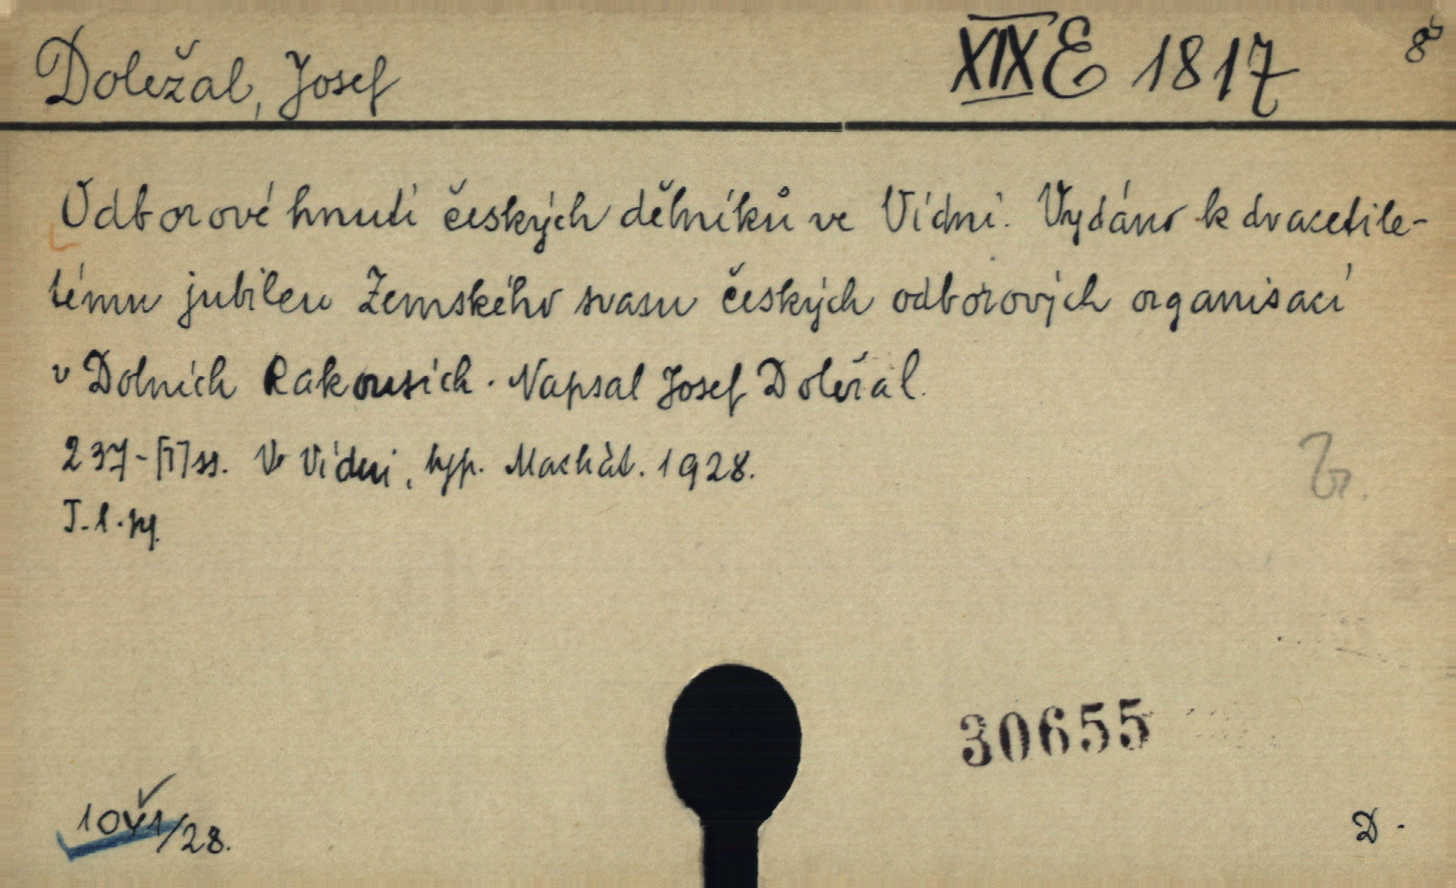 Doležal, Josef XIX E 1817 8°
Odborové hnutí českých dělníků ve Vídni. Vydáno k dvacetile-
témuu jubileu Zemského svasu českých odborových organisací
v Dolních Rakousích. Napsal Josef Doležal.
237-[1] ss. Ve Vídni, typ. Machát. 1928.
30655
D.